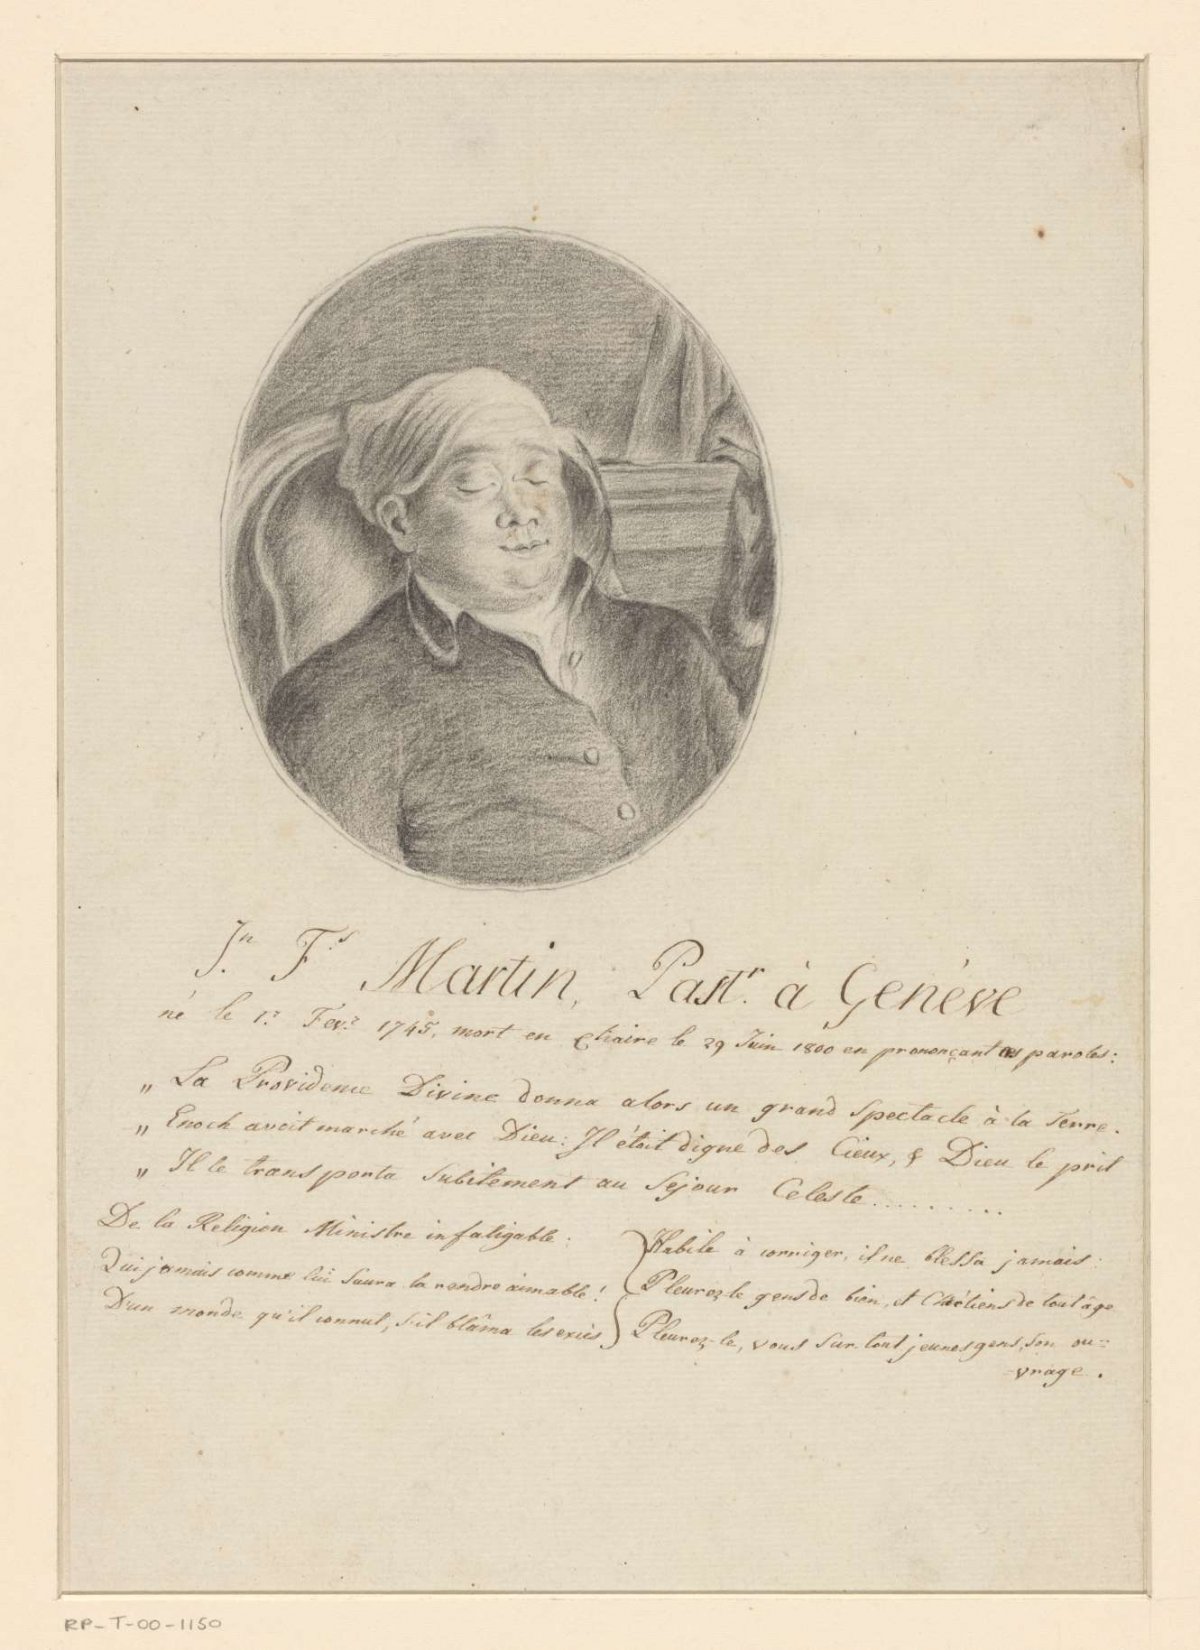 Jn. F.s Martin, Past.r à Genève
né le 1.r Fev.r 1745, mort en Chaire le 29 Juin 1800 en prononçant ces paroles:
„ La Providence Divine donna alors un grand Spectacle à la Terre.
„ Enoch avoit marché avec Dieu: Il étoit digne des Cieux, & Dieu le prit
„ Il le transporta Subitement au Sejour Celeste.........
De la Religion Ministre infatigable:
Qui jamais comme lui Saura la rendre aimable!
D'un monde qu'il connut, s'il blâma les excès
Habile à corriger, il ne blessa jamais:
Pleurez-le gens de bien, et Chrétiens de tout âge
Pleurez-le, vous Sur-tout jeunes gens, son ou=
vrage.
RP-T-00-1150